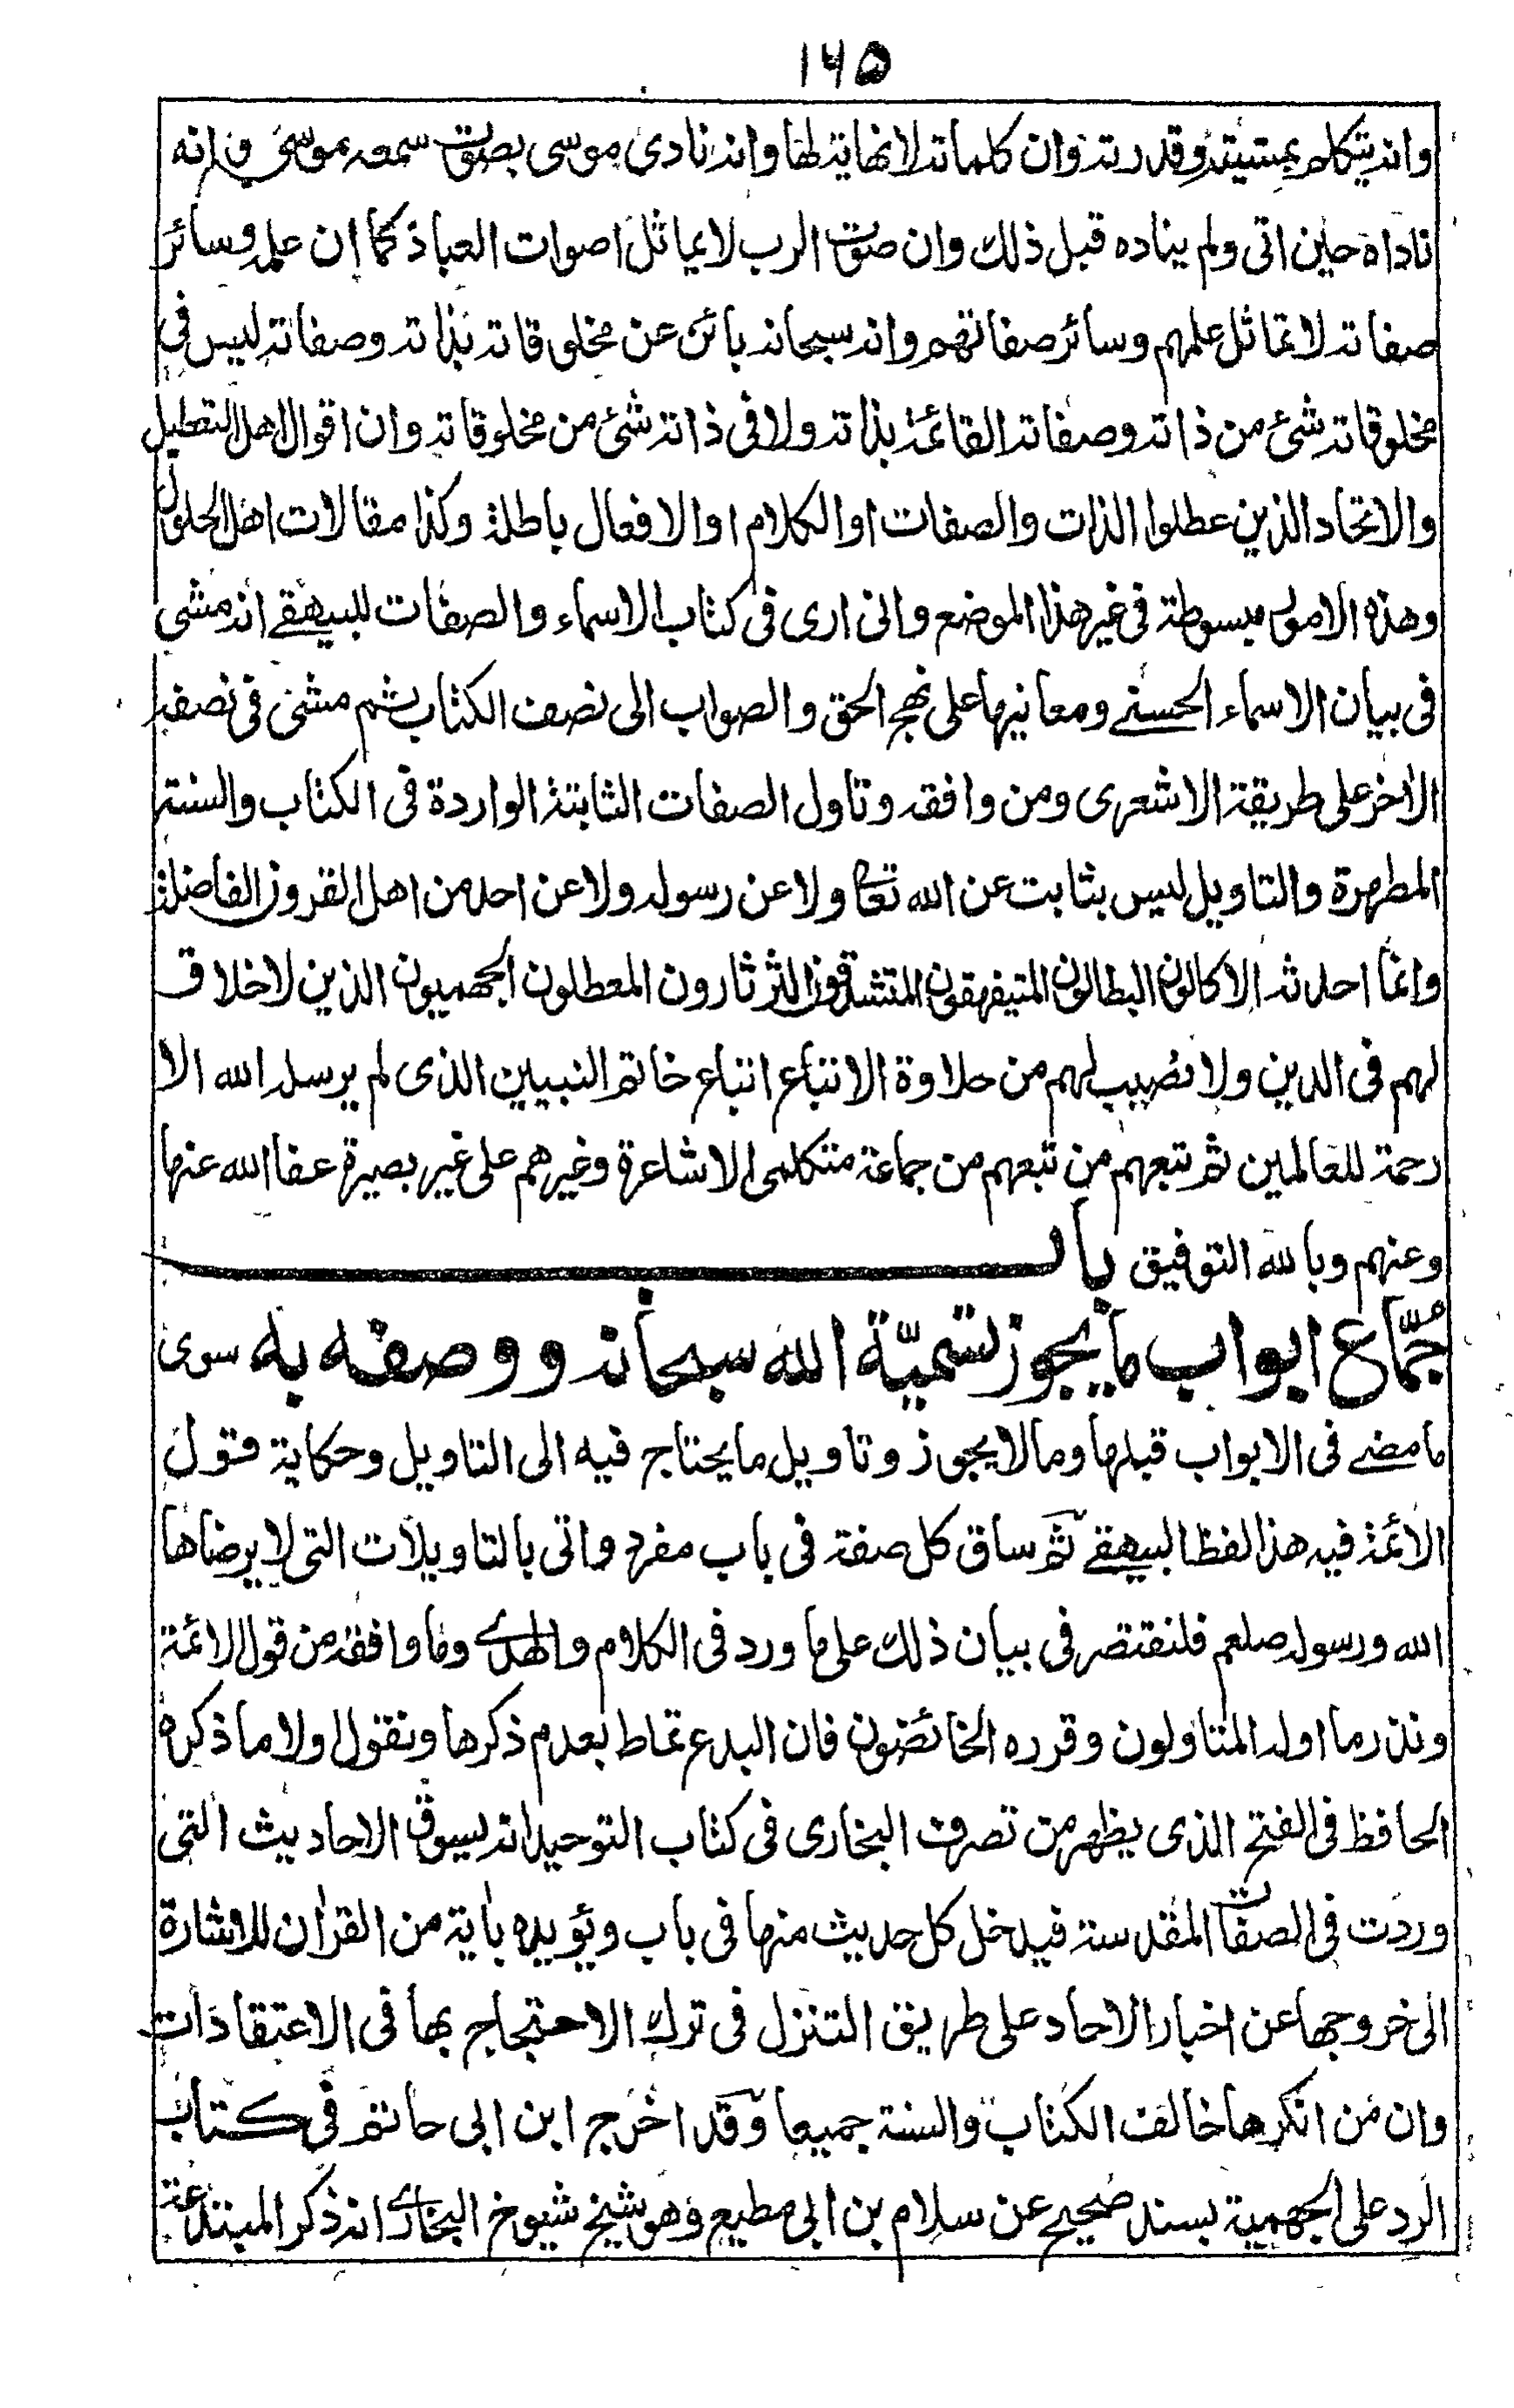 ١٦٥
وانه يتكلم بمشيته وقدرته وان كلماته لا نهاية لها وانه نادى موسى بصوت سمعه موسى وانه
ناداه حين اتى ولم يناده قبل ذلك وان صوت الرب لا يماثل اصوات العباد كما ان علمه وسائر
صفاته لا تماثل علمهم وسائر صفاتهم وانه سبحانه بائن عن مخلوقاته بذاته وصفاته ليس فى
مخلوقاته شئ من ذاته وصفاته القائمة بذاته ولا فى ذاته شئ من مخلوقاته وان اقوال اهل التعطيل
والاتحاد الذين عطلوا الذات والصفات او الكلام او الافعال باطلة وكذا مقالات اهل الحلول
وهذه الامور مبسوطة فى غير هذا الموضع وانى ارى فى كتاب الاسماء والصفات للبيهقے انه مشى
فى بيان الاسماء الحسنے ومعانيها على نهج الحق والصواب الى نصف الكتاب ثم مشى فى نصفه
الاخر على طريقة الاشعرى ومن وافقه وتاول الصفات الثابتة الواردة فى الكتاب والسنة
المطهرة والتاويل ليس بثابت عن الله تعا ولا عن رسوله ولا عن احد من اهل القرون الفاضلة
وانما احدثه الاكالون البطالون المتيفهقون المتشدقون الثرثارون المعطلون الجهميون الذين لا خلاق
لهم فى الدين ولا نصيب لهم من حلاوة الاتباع اتباع خاتم النبيين الذى لم يرسله الله الا
رحمة للعالمين ثم تبعهم من تبعهم من جماعة متكلمى الاشاعرة وغيرهم على غير بصيرة عفا الله عنها
وعنهم وبالله التوفيق باب
جُمّاع ابواب ما يجوز تسميّة الله سبحانه ووصفه به سوى
ما مضے فى الابواب قبلها وما لا يجوز وتاويل ما يحتاج فيه الى التاويل وحكاية قول
الائمة فيه هذا لفظ البيهقے ثم ساق كل صفة فى باب مفرد واتى بالتاويلات التى لا يرضاها
الله ورسوله صلعم فلنقتصر فى بيان ذلك على ما ورد فى الكلام والهدے وما وافقه من قول الائمة
ونذر ما اوله المتاولون وقرره الخائضون فان البدع تماط بعدم ذكرها ونقول اولا ما ذكره
الحافظ فى الفتح الذى يظهر من تصرف البخارى فى كتاب التوحيد انه يسوق الاحاديث التى
وردت فى الصفات المقدسة فيدخل كل حديث منها فى باب ويؤيده باية من القرآن للاشارة
الى خروجها عن اخبار الاحاد على طريق التنزل فى ترك الاحتجاج بها فى الاعتقادات
وان من انكرها خالف الكتاب والسنة جميعا وقد اخرج ابن ابى حاتم فى كتاب
الرد على الجهمية بسند صحيح عن سلام بن ابى مطيع وهو شيخ شيوخ البخارے انه ذكر المبتدعة